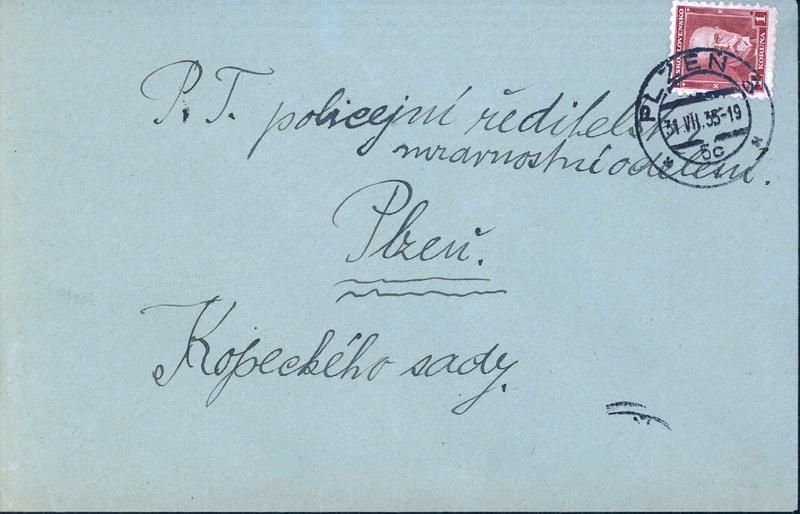 ČESKOSLOVENSKO
1
KORUNA
PLZEŇ
31.VII.35-19
5c
P. T. policejní ředitelství
mravnostní oddělení.
Plzeň.
Kopeckého sady.